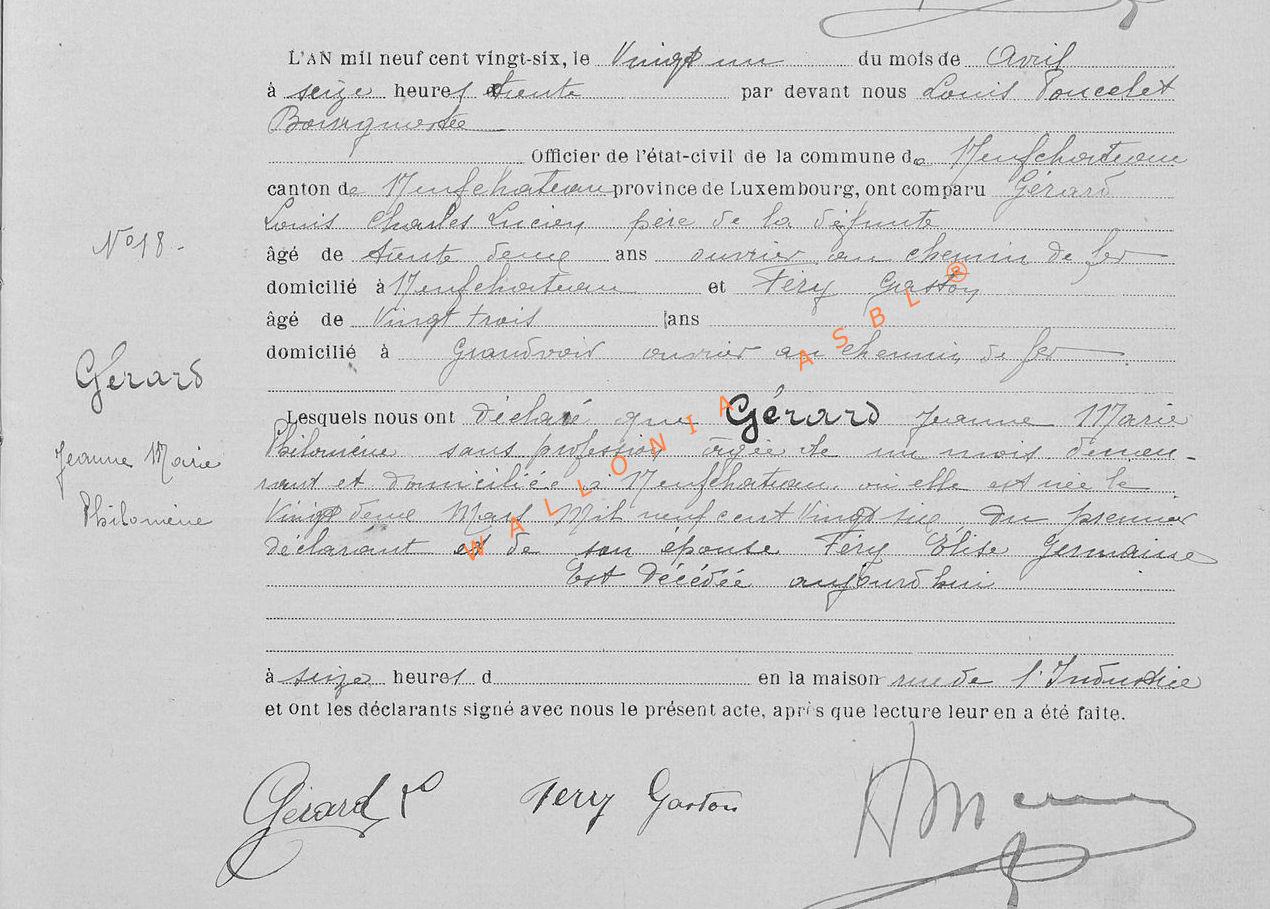 L'AN mil neuf cent vingt-six, le Vingt un du mois de Avril
à seize heures trente par devant nous Louis Poncelet
Bourgmestre
Officier de l'état-civil de la commune de Neufchateau
canton de Neufchateau province de Luxembourg, ont comparu Gérard
Louis Charles Lucien père de la défunte
N° 18 -
âgé de trente deux ans ouvrier au chemin de fer
domicilié à Neufchateau et Féry Gaston
âgé de Vingt trois ans
domicilié à Grandvoir ouvrier au chemin de fer
Gérard
Jeanne Marie
Philomène
Lesquels nous ont déclaré que Gérard Jeanne Marie
Philomène sans profession âgée de un mois demeu-
rant et domiciliée à Neufchateau où elle est née le
Vingt deux Mars Mil neuf cent Vingt six du premier
déclarant et de son épouse Féry Elise Germaine
Est décédée aujourd'hui
à seize heures d en la maison rue de l'Industrie
et ont les déclarants signé avec nous le présent acte, après que lecture leur en a été faite.
Gérard Fery Gaston
WALLONIA ASBL ®